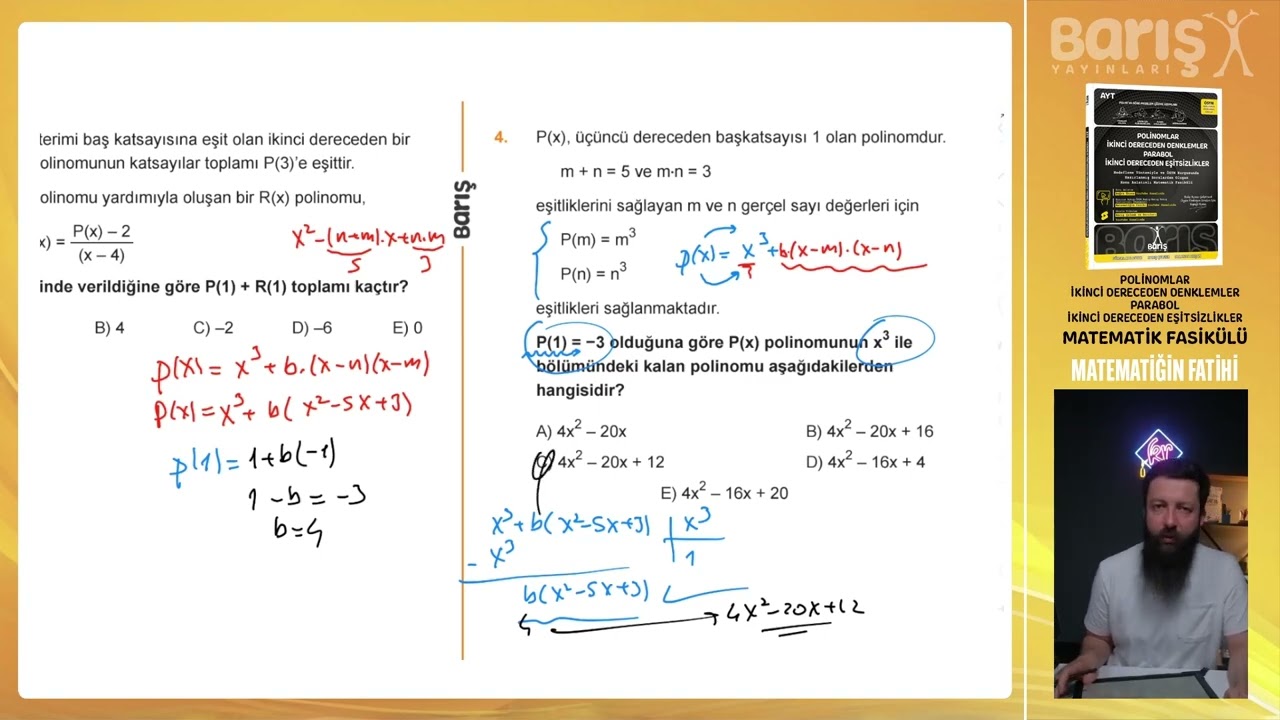 terimi baş katsayısına eşit olan ikinci dereceden bir
olinomunun katsayılar toplamı P(3)'e eşittir.
olinomu yardımıyla oluşan bir R(x) polinomu,
x) = P(x) – 2 / (x – 4)
x² – (n+m).x + n.m
5 3
inde verildiğine göre P(1) + R(1) toplamı kaçtır?
B) 4 C) –2 D) –6 E) 0
p(x) = x³ + b.(x–n)(x–m)
p(x) = x³ + b(x²–5x+3)
p(1) = 1+b(–1)
1 – b = –3
b=4
BARIŞ
4. P(x), üçüncü dereceden başkatsayısı 1 olan polinomdur.
m + n = 5 ve m·n = 3
eşitliklerini sağlayan m ve n gerçel sayı değerleri için
P(m) = m³
P(n) = n³
p(x) = x³ + b(x–m).(x–n)
eşitlikleri sağlanmaktadır.
P(1) = –3 olduğuna göre P(x) polinomunun x³ ile
bölümündeki kalan polinomu aşağıdakilerden
hangisidir?
A) 4x² – 20x B) 4x² – 20x + 16
C) 4x² – 20x + 12 D) 4x² – 16x + 4
E) 4x² – 16x + 20
x³ + b(x²–5x+3) | x³
– x³ 1
b(x²–5x+3)
4 4x²–20x+12
BARIŞ
YAYINLARI
AYT
POLİNOMLAR
İKİNCİ DERECEDEN DENKLEMLER
PARABOL
İKİNCİ DERECEDEN EŞİTSİZLİKLER
BARIŞ
POLİNOMLAR
İKİNCİ DERECEDEN DENKLEMLER
PARABOL
İKİNCİ DERECEDEN EŞİTSİZLİKLER
MATEMATİK FASİKÜLÜ
MATEMATİĞİN FATİHİ